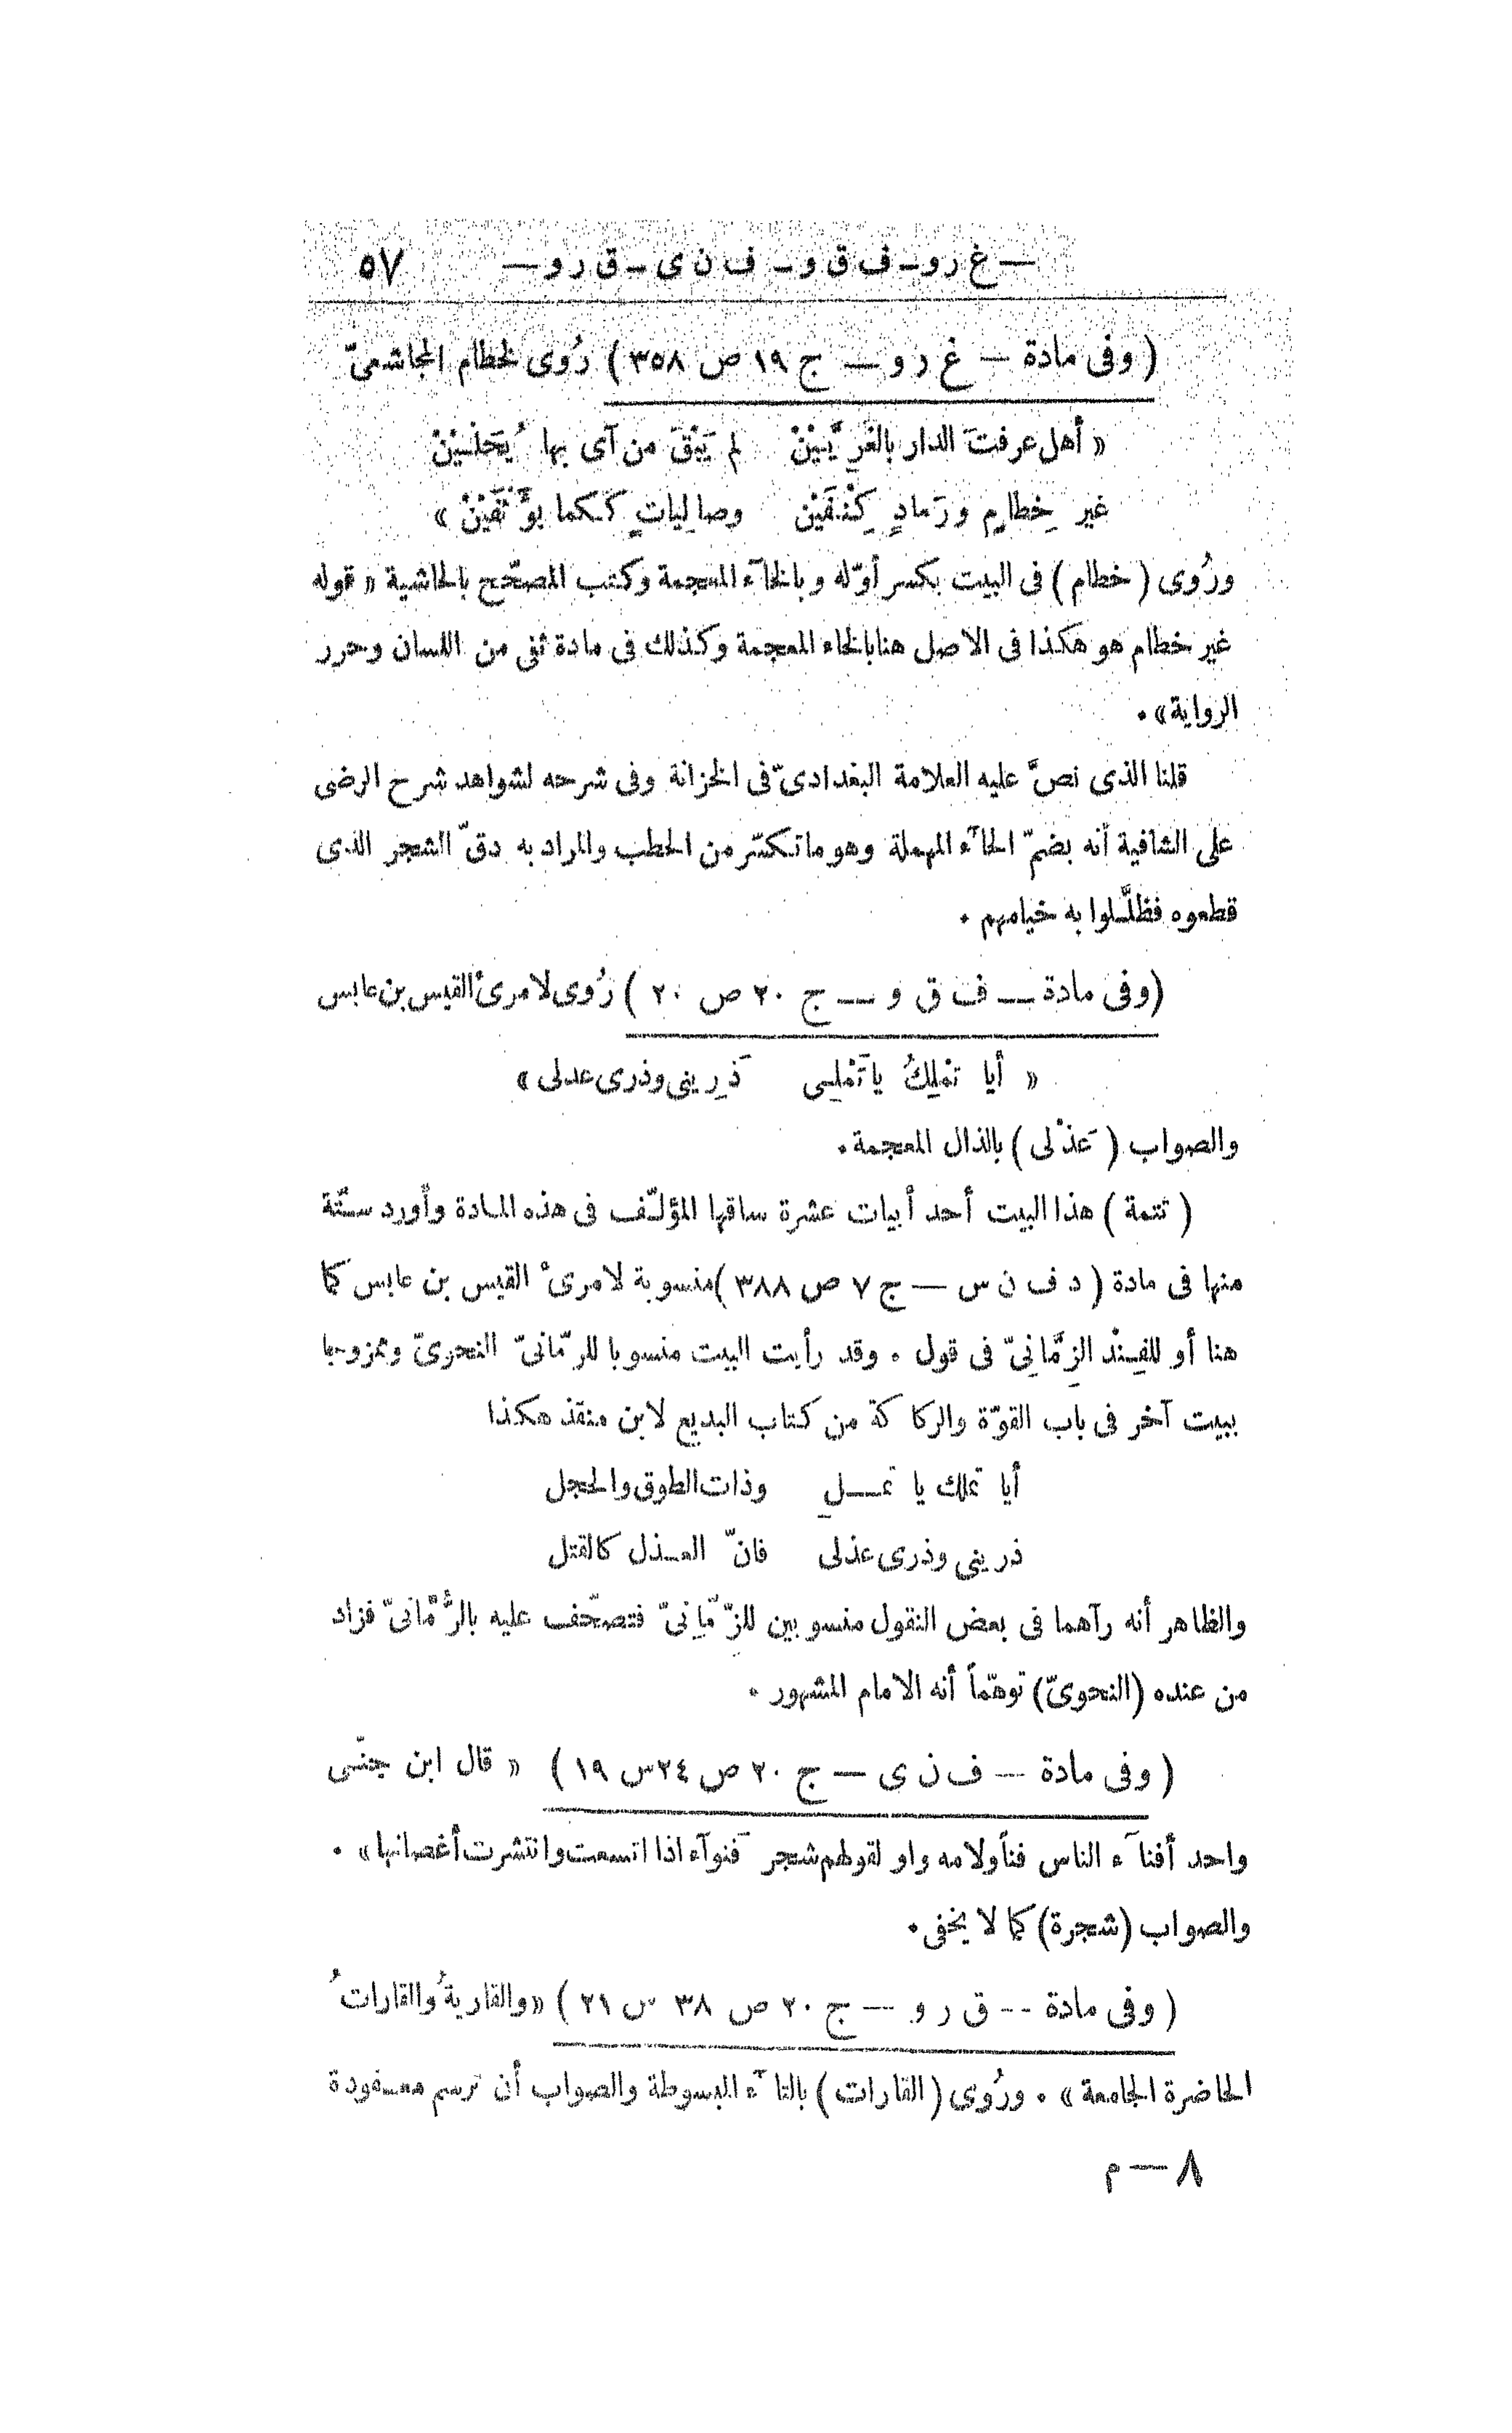 — غ رو ـ ف ق و ـ ف ن ى ـ ق ر و — ٥٧
( وفى مادة — غ ر و — ج ١٩ ص ٣٥٨ ) رُوى لخطام المجاشعىّ
« أهل عرفتَ الدار بالغَرِيَّيْنْ لم يَبْقَ من آى بها يُحَلَّيْنْ
غير خِطامٍ ورَمادٍ كِنْفَيْن وصالِياتٍ كَكما يؤَثْفَيْنْ »
ورُوى ( خطام ) فى البيت بكسر أوّله وبالخآء المعجمة وكتب المصحّح بالحاشية « قوله
غير خطام هو هكذا فى الاصل هنا بالخاء المعجمة وكذلك فى مادة ثفى من اللسان وحرر
الرواية » .
قلنا الذى نصّ عليه العلامة البغدادىّ فى الخزانة وفى شرحه لشواهد شرح الرضى
على الشافية أنه بضمّ الحآء المهملة وهو ما تكسّر من الحطب والمراد به دقّ الشجر الذى
قطعوه فظلّلوا به خيامهم .
(وفى مادة — ف ق و — ج ٢٠ ص ٢٠ ) رُوى لامرئ القيس بن عابس
« أيا تمْلِكُ يا تَمْلِى ذَرِينى وذرى عدلى »
والصواب ( عَذْلى ) بالذال المعجمة .
( تتمة ) هذا البيت أحد أبيات عشرة ساقها المؤلّف فى هذه المادة وأورد ستّة
منها فى مادة ( د ف ن س — ج ٧ ص ٣٨٨ ) منسوبة لامرئ القيس بن عابس كما
هنا أو للفِنْد الزِمَّانِىّ فى قول . وقد رأيت البيت منسوبا للرمّانىّ النحوىّ وممزوجا
ببيت آخر فى باب القوّة والركاكة من كتاب البديع لابن منقذ هكذا
أيا تملك يا تمــلِ وذات الطوق والحجل
ذرينى وذرى عذلى فانّ العــذل كالقتل
والظاهر أنه رآهما فى بعض النقول منسوبين للزِّمّانِىّ فتصحّف عليه بالرُّمَّانىّ فزاد
من عنده (النحوىّ) توهّماً أنه الامام المشهور .
( وفى مادة — ف ن ى — ج ٢٠ ص ٢٤ س ١٩ ) « قال ابن جنّى
واحد أفنآء الناس فناً ولامه واو لقولهم شجر فَنوآء اذا اتسعت وانتشرت أغصانها » .
والصواب (شجرة) كما لا يخفى .
( وفى مادة -- ق ر و — ج ٢٠ ص ٣٨ س ٢١ ) «والقاريةُ والقاراتُ
الحاضرة الجامعة » . ورُوى ( القارات ) بالتآء المبسوطة والصواب أن ترسم معــقودة
٨ — م